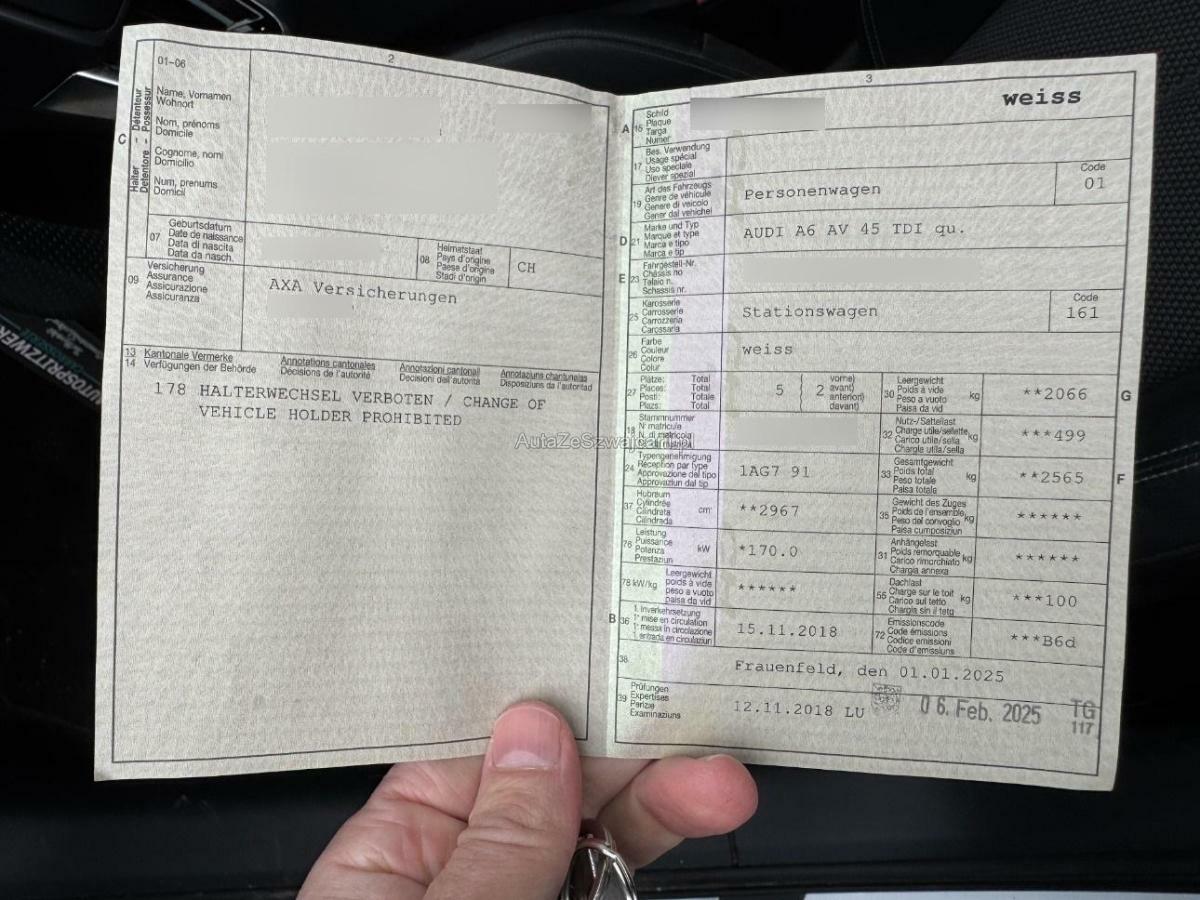 2
01-06
C
Halter - Détenteur
Detentore - Possessur
Name, Vornamen
Wohnort
Nom, prénoms
Domicile
Cognome, nomi
Domicilio
Num, prenums
Domicil
07
Geburtsdatum
Date de naissance
Data di nascita
Data da nasch.
08
Heimatstaat
Pays d'origine
Paese d'origine
Stadi d'origin
CH
09
Versicherung
Assurance
Assicurazione
Assicuranza
AXA Versicherungen
13 Kantonale Vermerke Annotations cantonales Annotazioni cantonali Annotaziuns chantunalas
14 Verfügungen der Behörde Décisions de l'autorité Decisioni dell'autorità Disposiziuns da l'autoritad
178 HALTERWECHSEL VERBOTEN / CHANGE OF
VEHICLE HOLDER PROHIBITED
3
weiss
A
15
Schild
Plaque
Targa
Numer
17
Bes. Verwendung
Usage spécial
Uso speciale
Diever spezial
19
Art des Fahrzeugs
Genre de véhicule
Genere di veicolo
Gener dal vehichel
Personenwagen
Code
01
D
21
Marke und Typ
Marque et type
Marca e tipo
Marca e tip
AUDI A6 AV 45 TDI qu.
E
23
Fahrgestell-Nr.
Châssis no
Telaio n.
Schassis nr.
25
Karosserie
Carrosserie
Carrozzeria
Carossaria
Stationswagen
Code
161
26
Farbe
Couleur
Colore
Colur
weiss
27
Plätze: Total
Places: Total
Posti: Totale
Plazs: Total
5
2
vorne)
avant)
anteriori)
davant)
30
Leergewicht
Poids à vide
Peso a vuoto
Paisa da vid
kg
**2066
G
18
Stammnummer
N° matricule
N. di matricola
32
Nutz-/Sattellast
Charge utile/sellette
Carico utile/sella
Chargia utile/sella
kg
***499
24
Typengenehmigung
Réception par type
Approvazione del tipo
Approvaziun dal tip
1AG7 91
33
Gesamtgewicht
Poids total
Peso totale
Paisa totala
kg
**2565
F
37
Hubraum
Cylindrée
Cilindrata
Cilindrada
cm³
**2967
35
Gewicht des Zuges
Poids de l'ensemble
Peso del convoglio
Paisa cumposiziun
kg
******
76
Leistung
Puissance
Potenza
Prestaziun
kW
*170.0
31
Anhängelast
Poids remorquable
Carico rimorchiato
Chargia annexa
kg
******
78 kW/kg
Leergewicht
poids à vide
peso a vuoto
paisa da vid
******
55
Dachlast
Charge sur le toit
Carico sul tetto
Chargia sin il tetg
kg
***100
B
36
1. Inverkehrsetzung
1re mise en circulation
1a messa in circolazione
1. entrada en circulaziun
15.11.2018
72
Emissionscode
Code émissions
Codice emissioni
Code d'emissiuns
***B6d
38
Frauenfeld, den 01.01.2025
39
Prüfungen
Expertises
Perizie
Examinaziuns
12.11.2018 LU
06. Feb. 2025
TG
117
AUTOSPRITZWERK